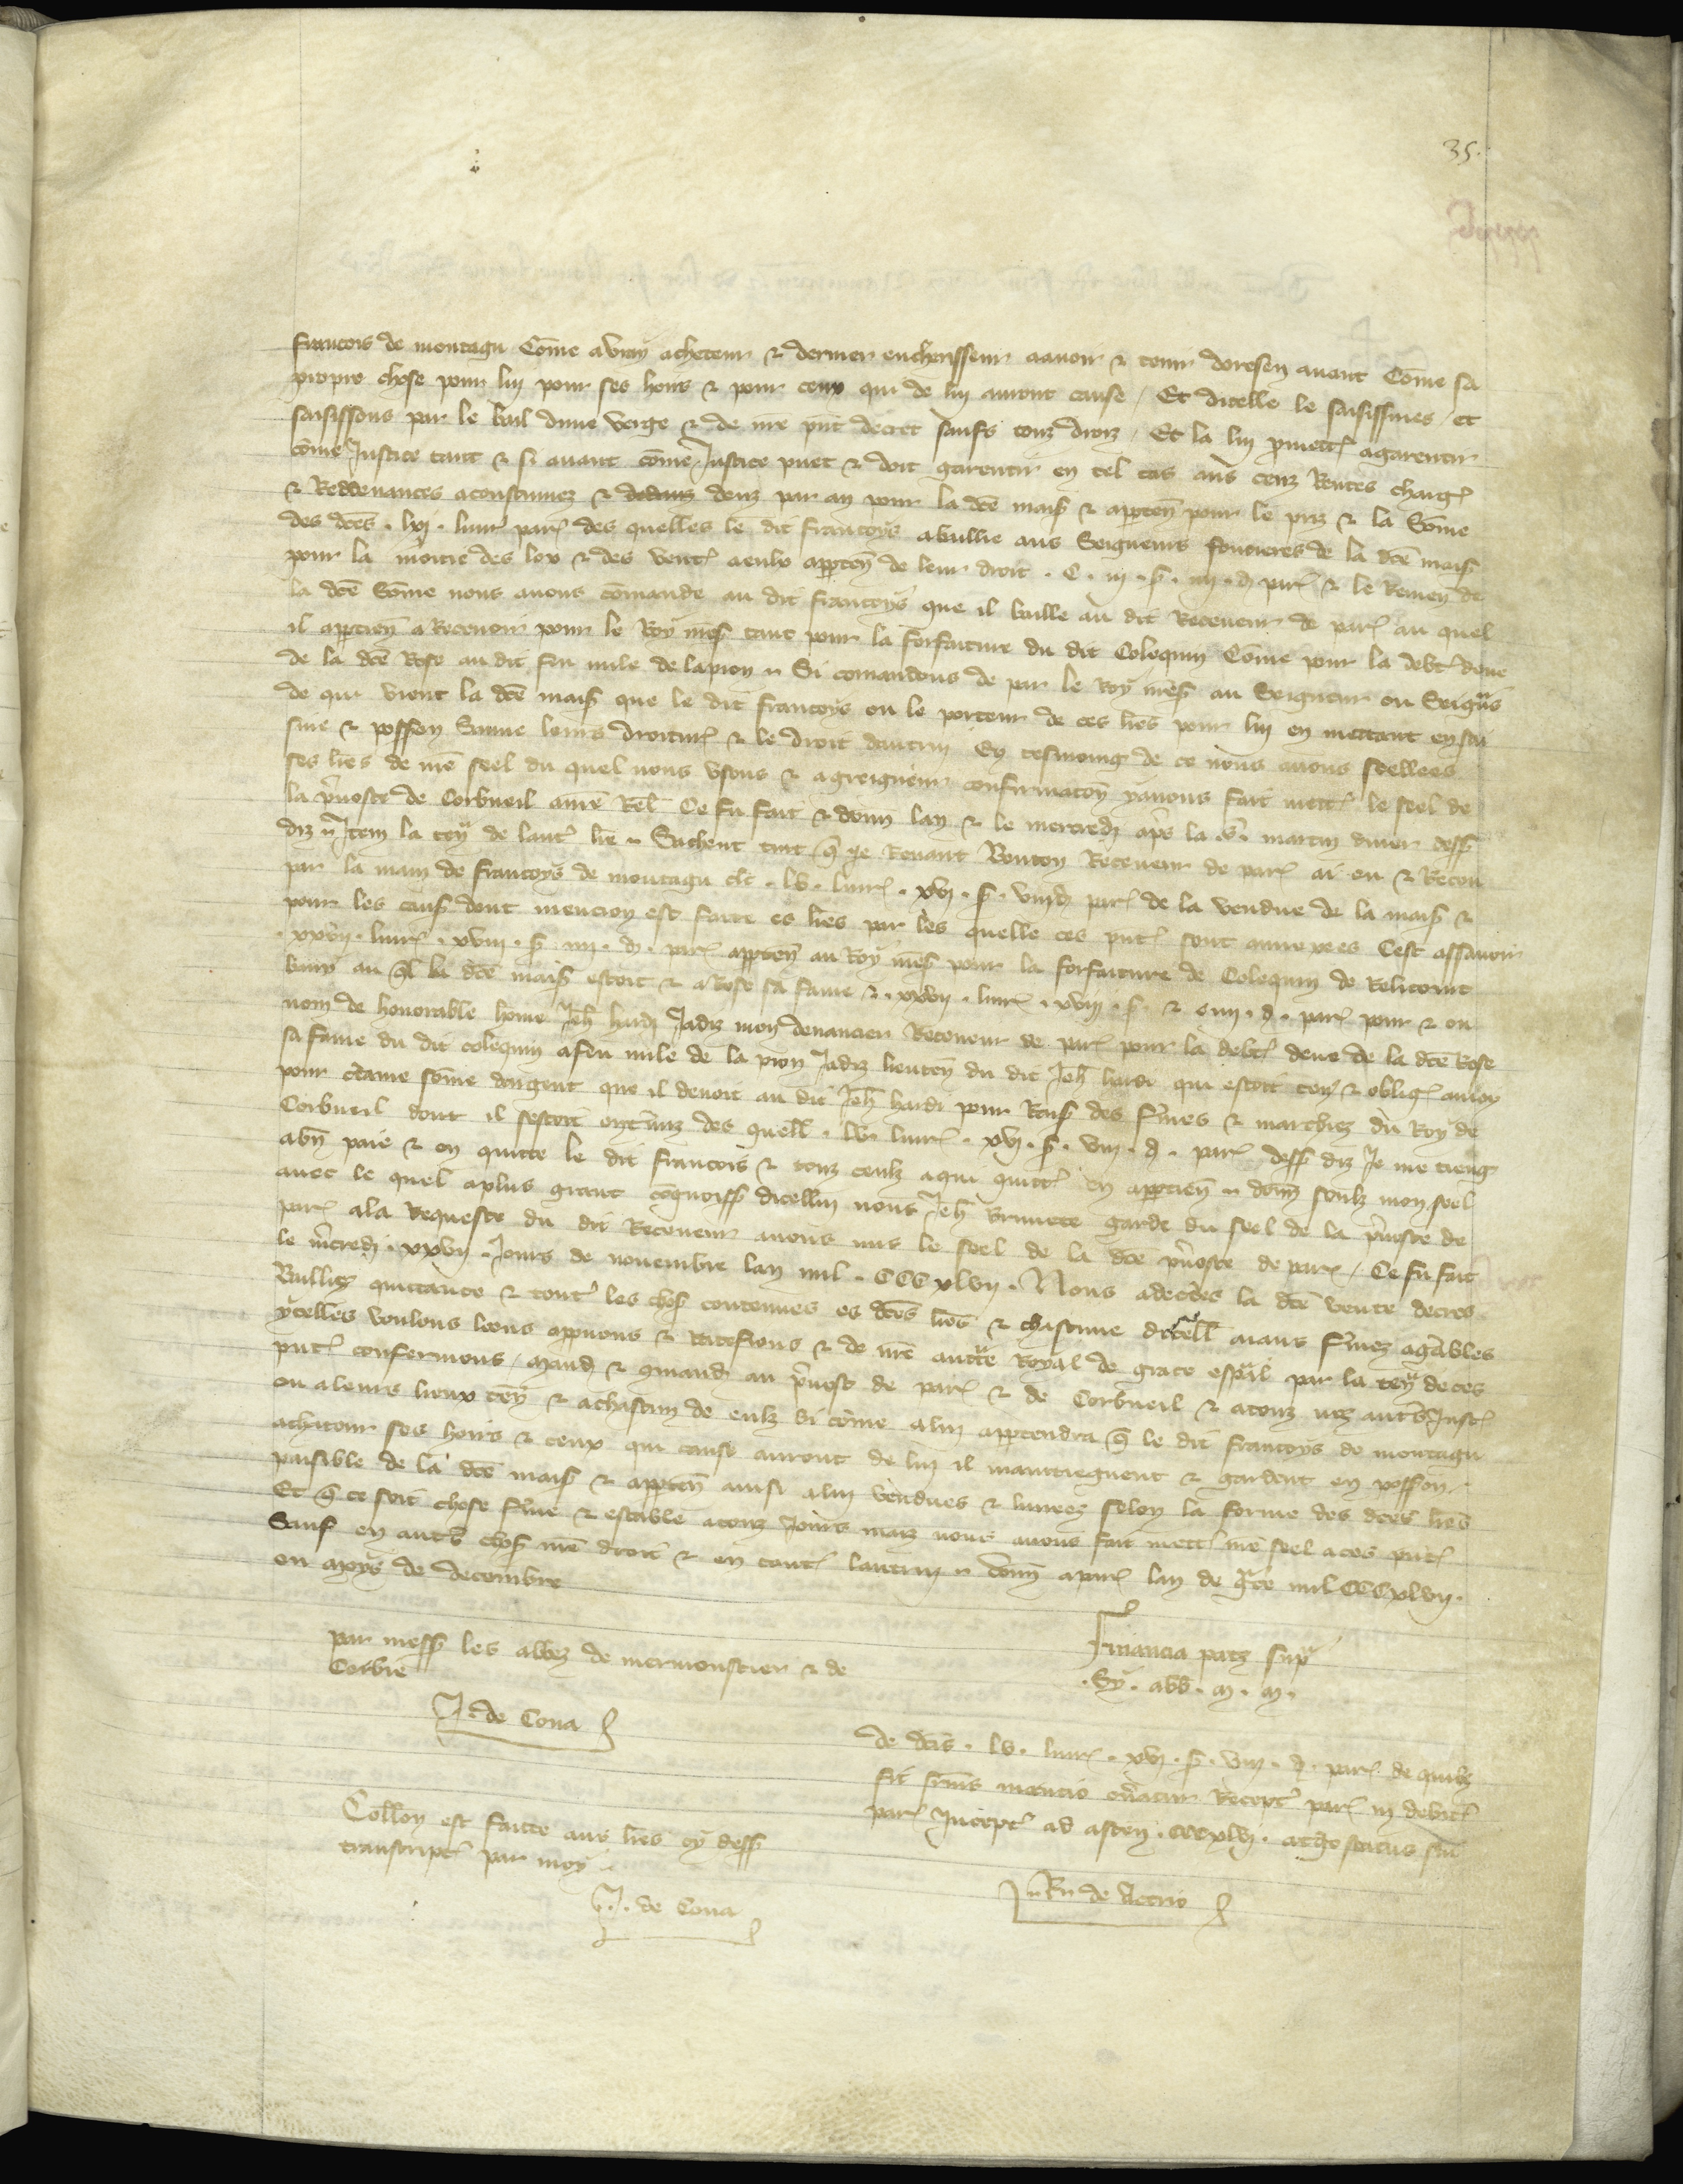 35.
francois de montagu Cōme a vray acheteur & dernier encherisseur a avoir & tenir doresen avant Cōme sa
propre chose pour lui pour ses hoirs & pour ceux qui de lui auront cause / Et dicelle le saisissmes / et
saisissons par le bail dune verge & de nre pnt decret saufs touz droiz / Et la lui pmett agarentir
cōme Justice tant & si avant cōme Justice puet & doit garentir en tel cas aus cenz Rentes charg
& Reddevances acoustumez & deuz par an pour la dce mais & apten pour le priz & la Sōme
des dces . lxj . livr par des quelles le dit francoys a baillie aus Seigneurs fonciers de la dce mais
pour la moitie des lox & des vent a eulx apten de leur droit . C . iij . s . iiij . d par & le Remen de
la dce Sōme nous avons cōmande au dit francoys que il baille au dit Receveur de par au quel
il aptien a Recevoir pour le Roy nres tant pour la forfaiture du dit Colequin Cōme pour la debt deue
de la dce Rose au dit feu mile de lapion Si comandons de par le Roy nres au Seigneur ou Seigrs
de qui vient la dce mais que le dit francoys ou le porteur de ces lres pour lui en mettant en sai
sine & possion Sauve leurs droitur & le droit dautrui En tesmoing de ce nous avons seellees
ses lres de nre seel du quel nous usons & a greigneur confirmacon y avons fait mett le seel de
la pvoste de Corbueil avec Cel Ce fu fait & donn lan & le mercredi aps la s. martin diver dess
diz Item la ten de laut lre Sachent tuit q Je Renant Bouton Receveur de par ai eu & Receu
par la main de francoys de montagu clc . lv . livr . xvj . s . viij d par de la vendue de la mais &
pour les caus dont mencion est faite es lres par les quelle ces pnt sont annexees Cest assavoir
. xxvij . livr . xviij . s . iiij . d . par apten au Roy nres pour la forfaiture de Colequin de Relicourt
bany au ql la dce mais estoit & a Rose sa fame & . xxvij . livr . xviij . s . & . iiij . d . par pour & ou
nom de honorable hōme Jeh hardi Jadiz mon devancier Receveur de par pour la debt deue de la dce Rose
sa fame du dit colequin a feu mile de la pion Jadiz lieuten du dit Jeh hardi qui estoit ten & oblig a moy
pour ctaine sōme dargent que il devoit au dit Jeh hardi pour Rais des fmes & marchiez du Roy de
Corbueil dont il sestoit des quell . lv . livr . xvj . s . viij . d . par dess diz Je me tieng
a bn paie & en quitte le dit francois & touz ceulx a qui quitt en aptien donn soubz mon seel
avec le quel a plus grant cognoiss dicelui nous Jeh Brunete garde du seel de la pvoste de
par a la Requeste du dit Receveur avons mis le seel de la dce pvoste de par / Ce fu fait
le mcredi . xxvij . Jours de novembre lan mil . CCC xlvij . Nous adecdes la dce vente decres
Baillie quittance & tout les chos contenues es dces lres & chascune dicell aians fmes agables
ycelles voulons loons apuons & Ratefions & de nre auctte Royal de grace espal par la ten de ces
pnt confermons / mand & qmand au pvost de par & de Corbueil & a touz noz autrs Just
ou a leurs lieux ten & a chascun de eulx si cōme a lui aptendra q le dit francoys de montagu
achateur ses hoirs & ceux qui cause auront de lui il maintiegnent & gardent en possion
paisible de la dce mais & apten ainsi a lui vendues & livrees selon la forme des dces lres
Et q ce soit chose fme & estable a touz Jours maiz nous avons fait mett nre seel a ces pnt
Sauf en autrs chos nre droit & en tout lautrui donn a par lan de gce mil CCC xlvij .
ou moys de decembre
par mess les abbez de mermoustier & de
Corbie
J . de Cona
Financia ptis sup
. Sy . abb . m . m .
de dcis . lv . livr . xvj . s . viij . d . par de quibz
fit supius mencio oneratur Recept par in debit
par Incept ad ascen . CCC xlvj .
Collon est faitte aus lres cy dess
transcript par moy
J . de Cona